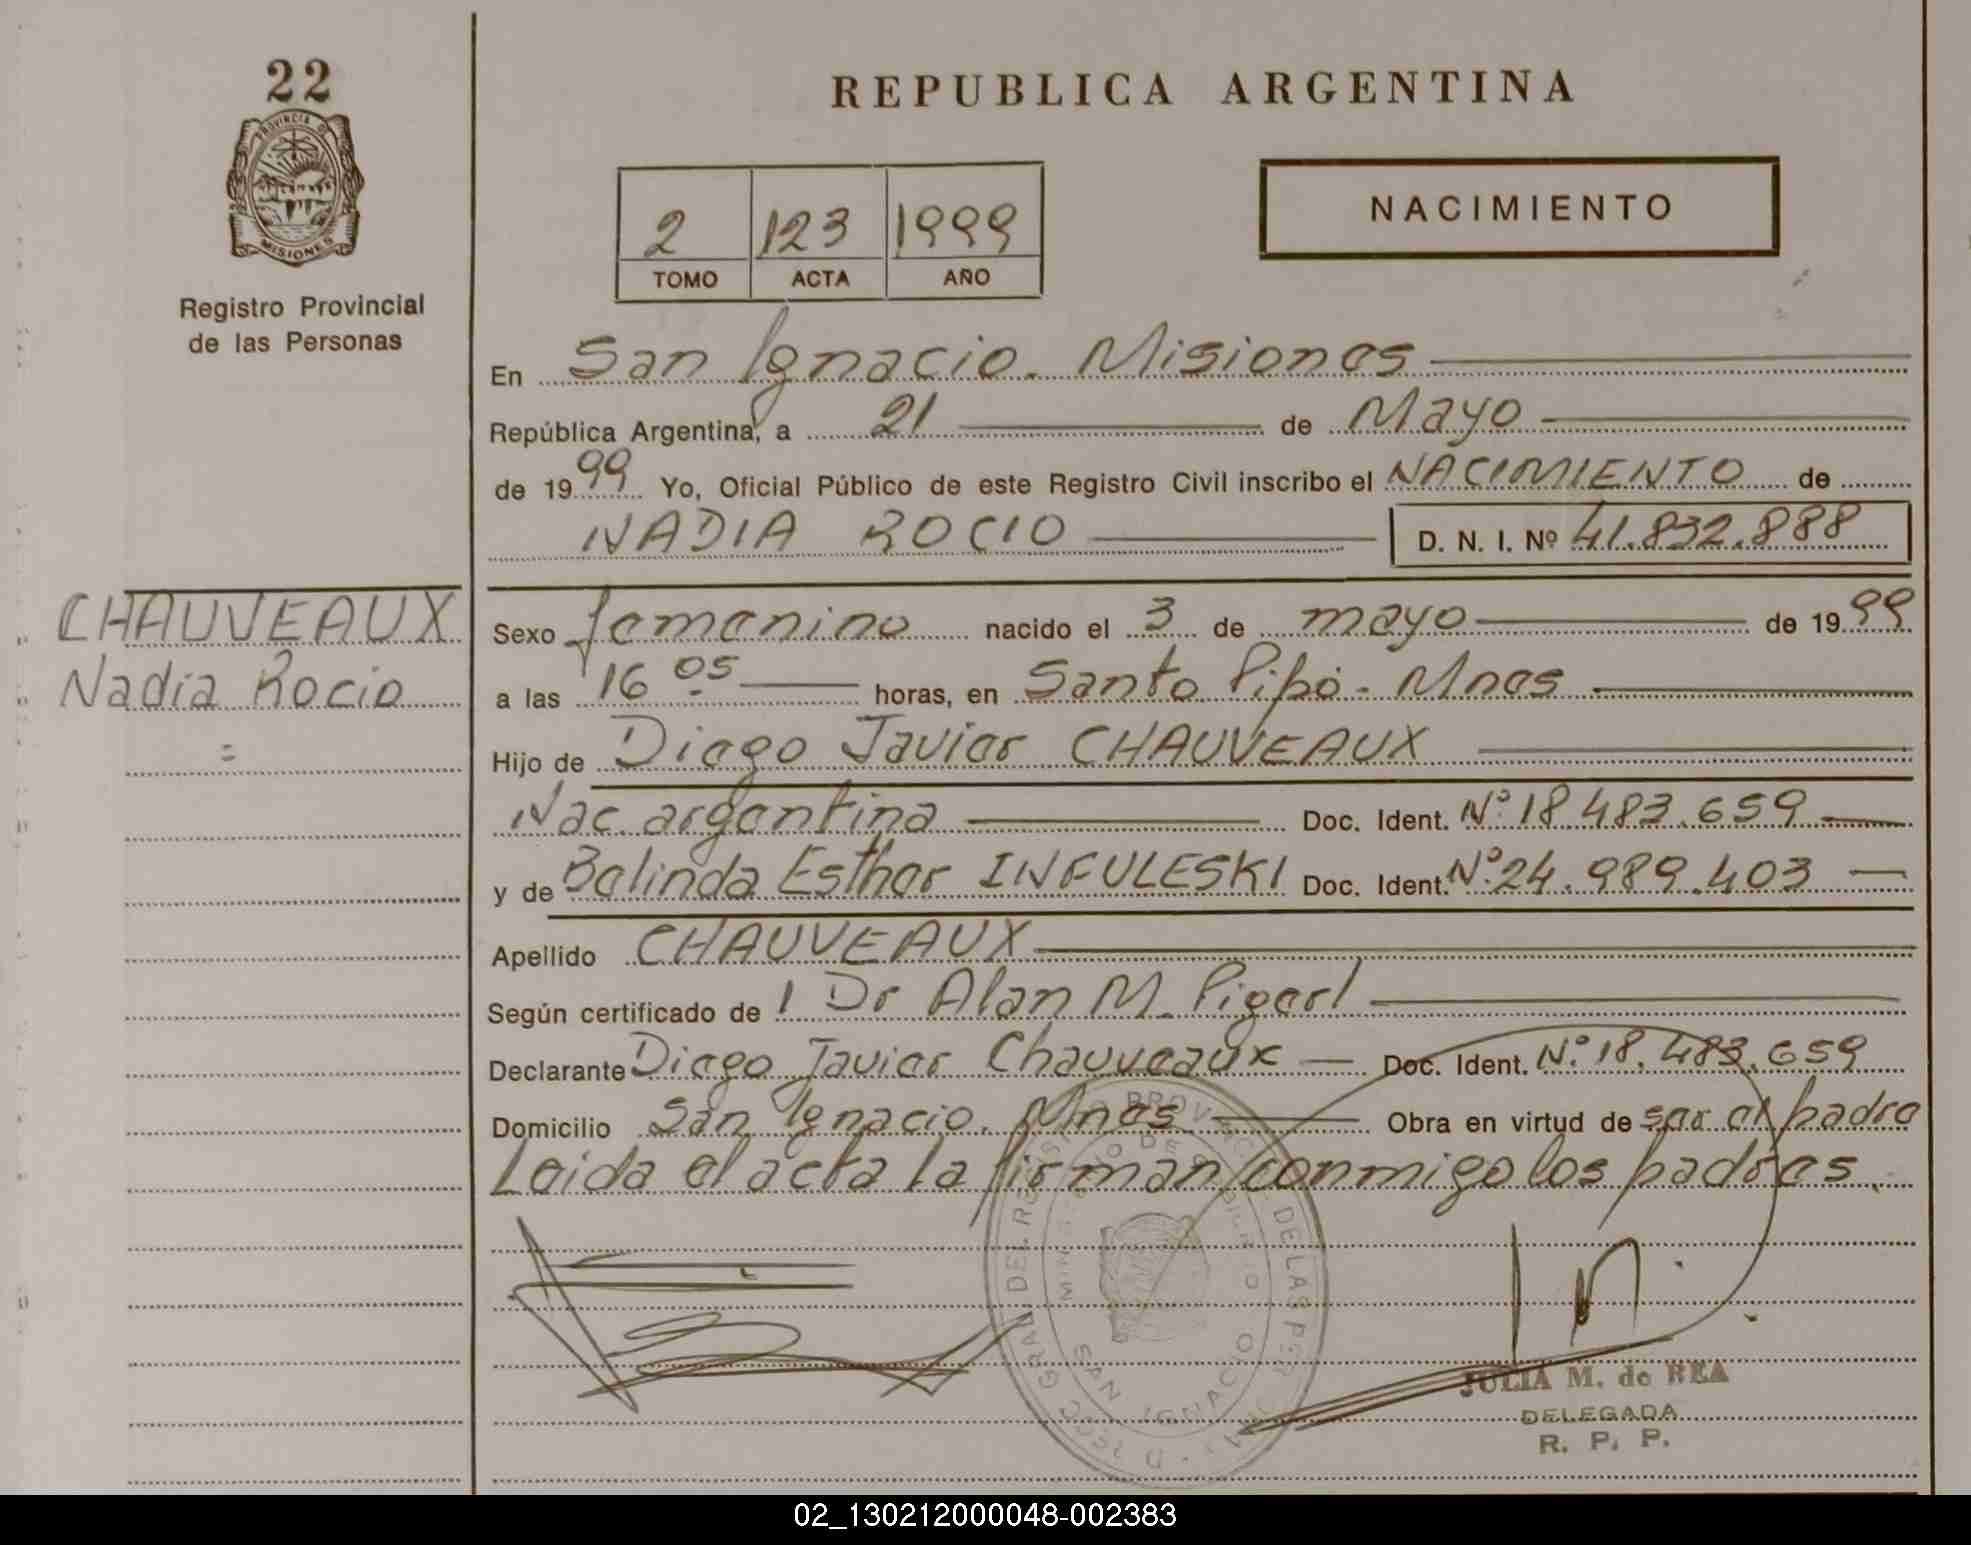 22
PROVINCIA DE
MISIONES
Registro Provincial
de las Personas
REPUBLICA ARGENTINA
2 123 1999
TOMO ACTA AÑO
NACIMIENTO
En San Ignacio. Misiones
República Argentina, a 21 de Mayo
de 1999 Yo, Oficial Público de este Registro Civil inscribo el NACIMIENTO de
NADIA ROCIO D. N. I. Nº 41.832.888
CHAUVEAUX
Nadia Rocio
Sexo femenino nacido el 3 de mayo de 1999
a las 16 05 horas, en Santo Pipó - Mnes
Hijo de Diego Javier CHAUVEAUX
Nac. argentina Doc. Ident. Nº 18 483.659
y de Belinda Esther INFULESKI Doc. Ident. Nº 24.989.403
Apellido CHAUVEAUX
Según certificado de 1 Dr Alan M. Pigerl
Declarante Diego Javier Chauveaux Doc. Ident. Nº 18.483.659
Domicilio San Ignacio. Mnes Obra en virtud de ser el padre
Leida el acta la firman conmigo los padres.
SAN IGNACIO
JULIA M. de REA
DELEGADA
R. P. P.
02_130212000048-002383